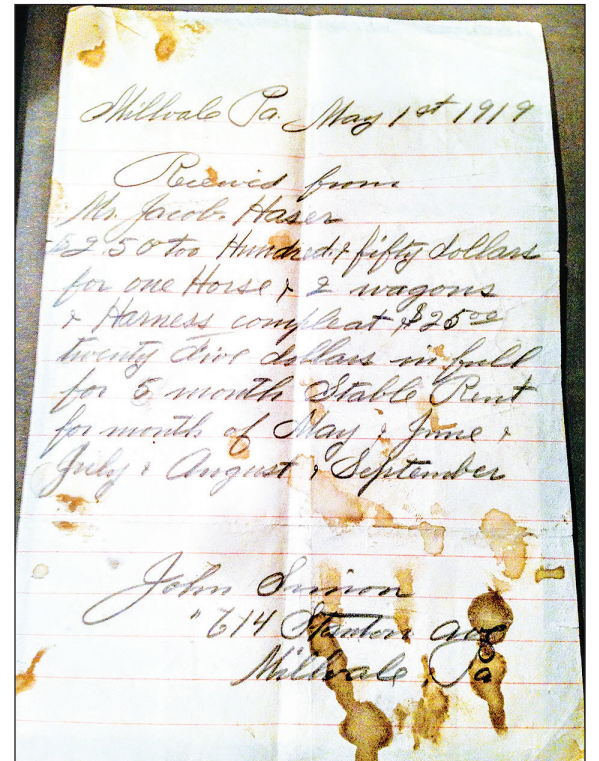 Millvale Pa. May 1st 1919
Received from
Mr. Jacob. Haser
$2.50 too Hundred & fifty dollars
for one Horse & 2 wagons
& Harness compleat & $25 00
twenty five dollars in full
for 5 month Stable Rent
for month of May & June &
July & August & September
John Simon
" 614 Stanton ave
Millvale Pa